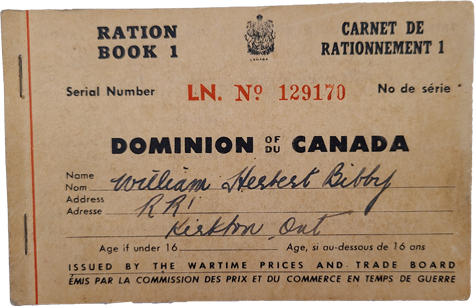 RATION BOOK 1
CARNET DE RATIONNEMENT 1
CANADA
Serial Number LN. Nº 129170 No de série
DOMINION OF DU CANADA
Name
Nom William Herbert Bibby
Address
Adresse RR1
Kirkton Ont
Age if under 16 Age, si au-dessous de 16 ans
ISSUED BY THE WARTIME PRICES AND TRADE BOARD
ÉMIS PAR LA COMMISSION DES PRIX ET DU COMMERCE EN TEMPS DE GUERRE